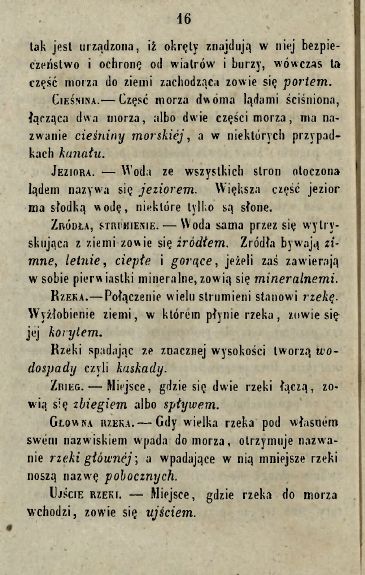 16
tak jest urządzona, iż okręty znajdują w niej bezpie-
czeństwo i ochronę od wiatrów i burzy, wówczas ta
część morza do ziemi zachodząca zowie się portem.
CIEŚNINA.— Część morza dwóma lądami ściśniona,
łącząca dwa morza, albo dwie części morza, ma na-
zwanie cieśniny morskiéj, a w niektórych przypad-
kach kanału.
JEZIORA. — Woda ze wszystkich stron otoczona
lądem nazywa się jeziorem. Większa część jezior
ma słodką wodę, niektóre tylko są słone.
ZRÓDŁA, STRUMIENIE. — Woda sama przez się wytry-
skująca z ziemi zowie się źródłem. Zródła bywają zi-
mne, letnie, ciepłe i gorące, jeżeli zaś zawierają
w sobie pierwiastki mineralne, zowią się mineralnemi.
RZEKA.—Połączenie wielu strumieni stanowi rzekę.
Wyżłobienie ziemi, w którém płynie rzeka, zowie się
jej korytem.
Rzeki spadając ze znacznej wysokości tworzą wo-
dospady czyli kaskady.
ZBIEG. — Miejsce, gdzie się dwie rzeki łączą, zo-
wią się zbiegiem albo spływem.
GŁOWNA RZEKA.— Gdy wielka rzeka pod własném
swém nazwiskiem wpada do morza, otrzymuje nazwa-
nie rzeki głównéj; a wpadające w nią mniejsze rzeki
noszą nazwę pobocznych.
UJŚCIE RZEKI. — Miejsce, gdzie rzeka do morza
wchodzi, zowie się ujściem.